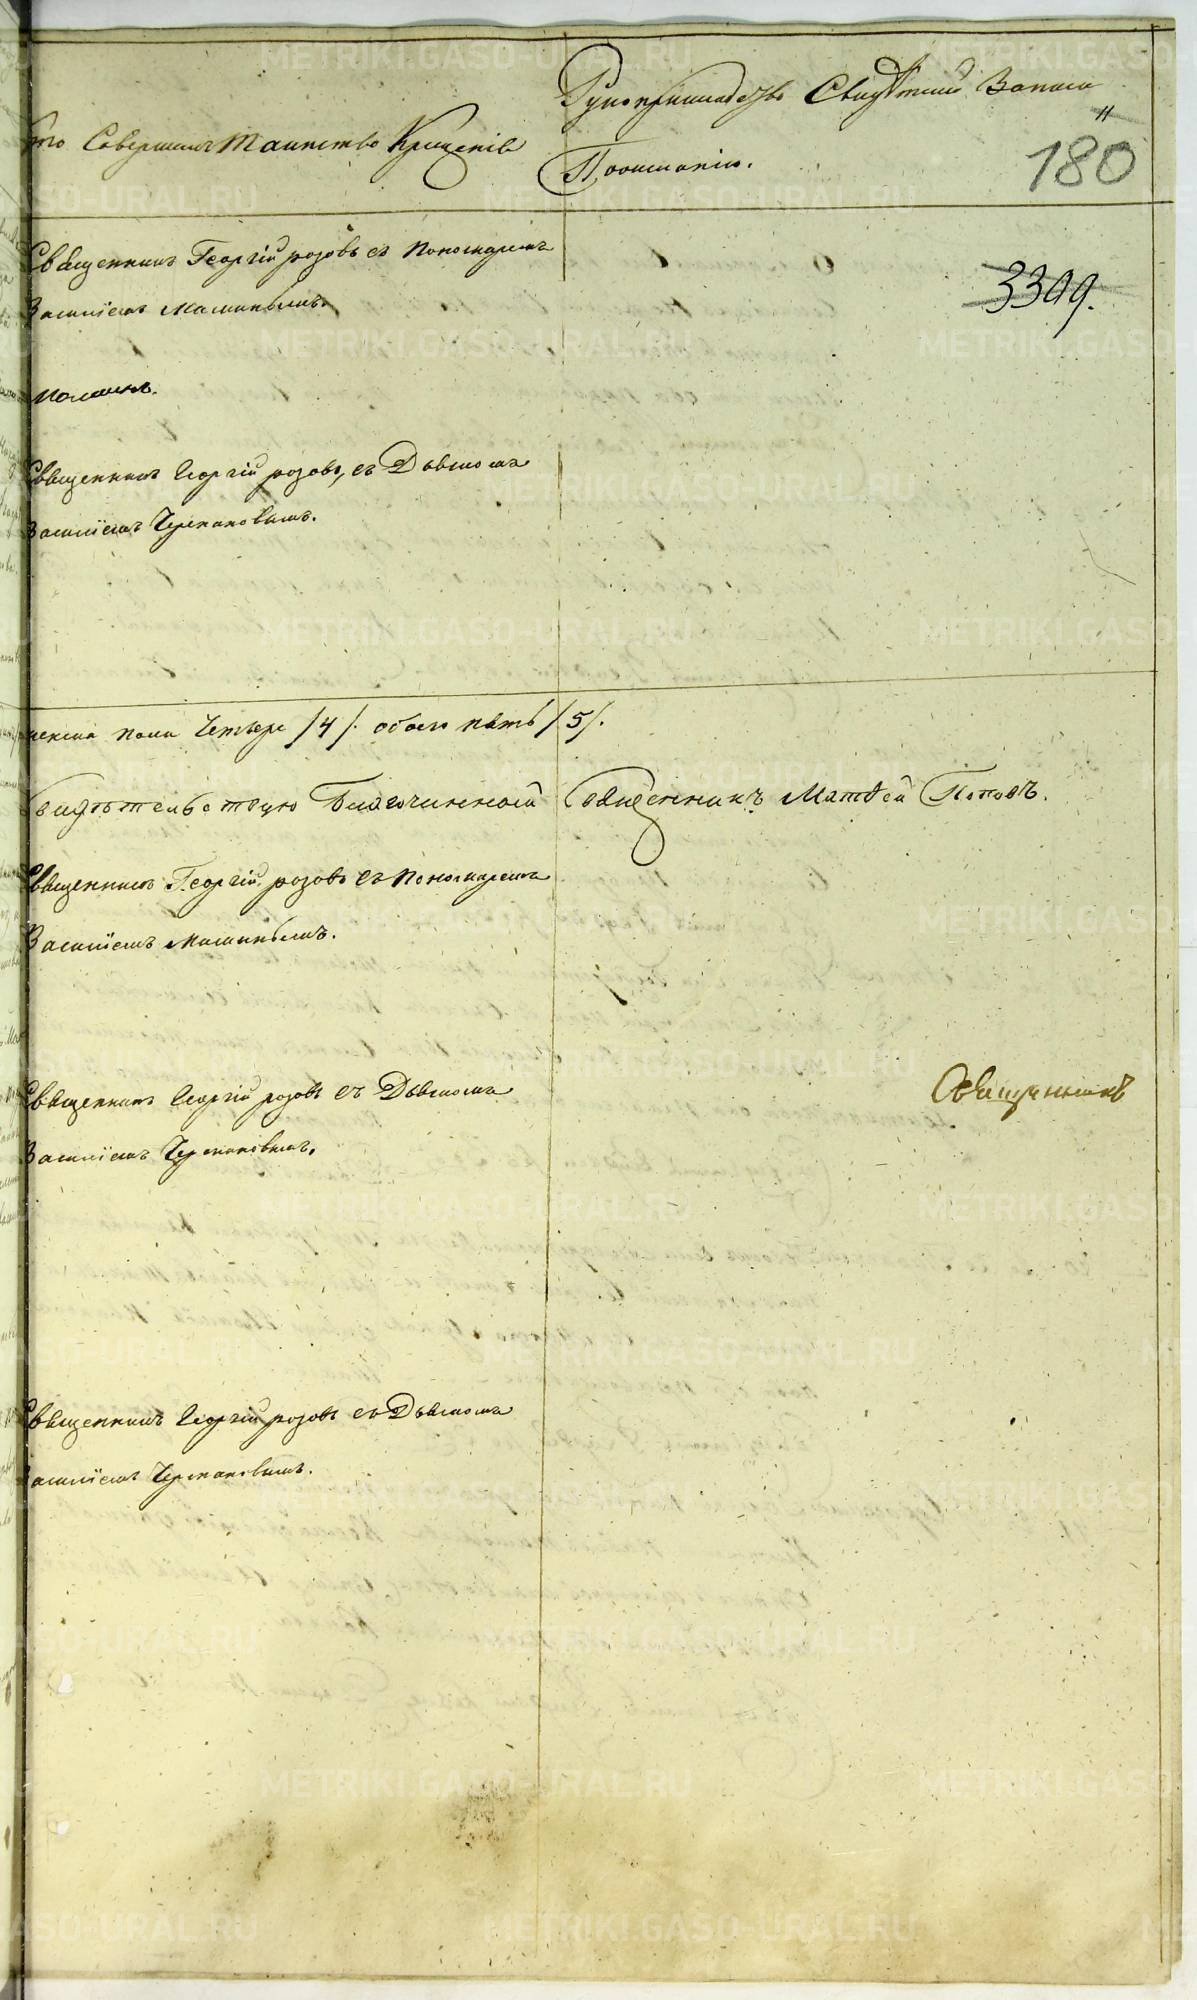 Кто Совершалъ Таинство Крещенія
Рукоприкладство Свидѣтелей Записи
По желанію.
180
3309.
Священникъ Георгій розовъ съ Пономаремъ
Василіемъ Маминымъ.
Священникъ Георгій розовъ, съ Дьячкомъ
Василіемъ Черепановымъ.
женска пола Четыре /4/. обоего пять /5/.
Свидѣтельствую Благочинной Священникъ Матвей Поповъ.
Священникъ Георгій розовъ съ Пономаремъ
Василіемъ Маминымъ.
Священникъ Георгій розовъ съ Дьячкомъ
Василіемъ Черепановымъ.
Священникъ
Священникъ Георгій розовъ съ Дьячкомъ
Василіемъ Черепановымъ.
METRIKI.GASO-URAL.RU